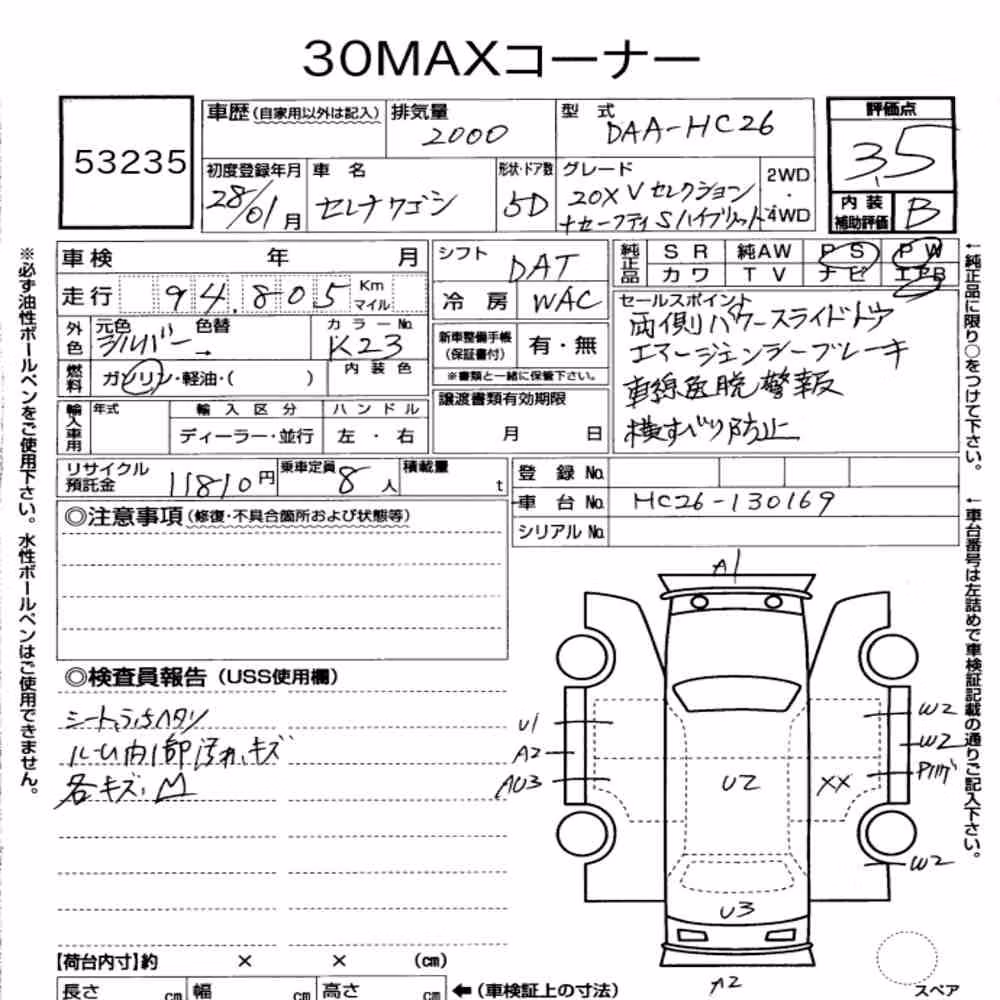 30MAXコーナー
53235
車歴 (自家用以外は記入)
排気量
2000
型式
DAA-HC26
評価点
3.5
初度登録年月
28/01月
車名
セレナワゴン
形状・ドア数
5D
グレード
20X Vセレクション
+セーフティ Sハイブリッド
2WD
・
4WD
内装
補助評価
B
車検 年 月
走行 94,805 Km
マイル
外色
元色
シルバー
色替
→
カラーNo.
K23
燃料
ガソリン・軽油・( )
内装色
輸入車用
年式
輸入区分
ディーラー・並行
ハンドル
左・右
シフト
DAT
冷房
WAC
新車整備手帳
(保証書付)
有・無
※書類と一緒に保管下さい。
譲渡書類有効期限
月 日
純正品
SR 純AW PS PW
カワ TV ナビ エアB
セールスポイント
両側パワースライドドア
エマージェンシーブレーキ
車線逸脱警報
横すべり防止
リサイクル
預託金
11810円
乗車定員
8人
積載量
t
登録No.
車台No.
HC26-130169
シリアルNo.
◎注意事項 (修復・不具合箇所および状態等)
◎検査員報告 (USS使用欄)
ルーム内1部汚れ、キズ
各キズ、M
A1
U1
A2
AU3
U2
XX
W2
W2
W2
U3
A2
スペア
【荷台内寸】約 × × (cm)
長さ cm 幅 cm 高さ cm
←(車検証上の寸法)
※必ず油性ボールペンをご使用下さい。水性ボールペンはご使用できません。
←純正品に限り○をつけて下さい。
←車台番号は左詰めで車検証記載の通りご記入下さい。